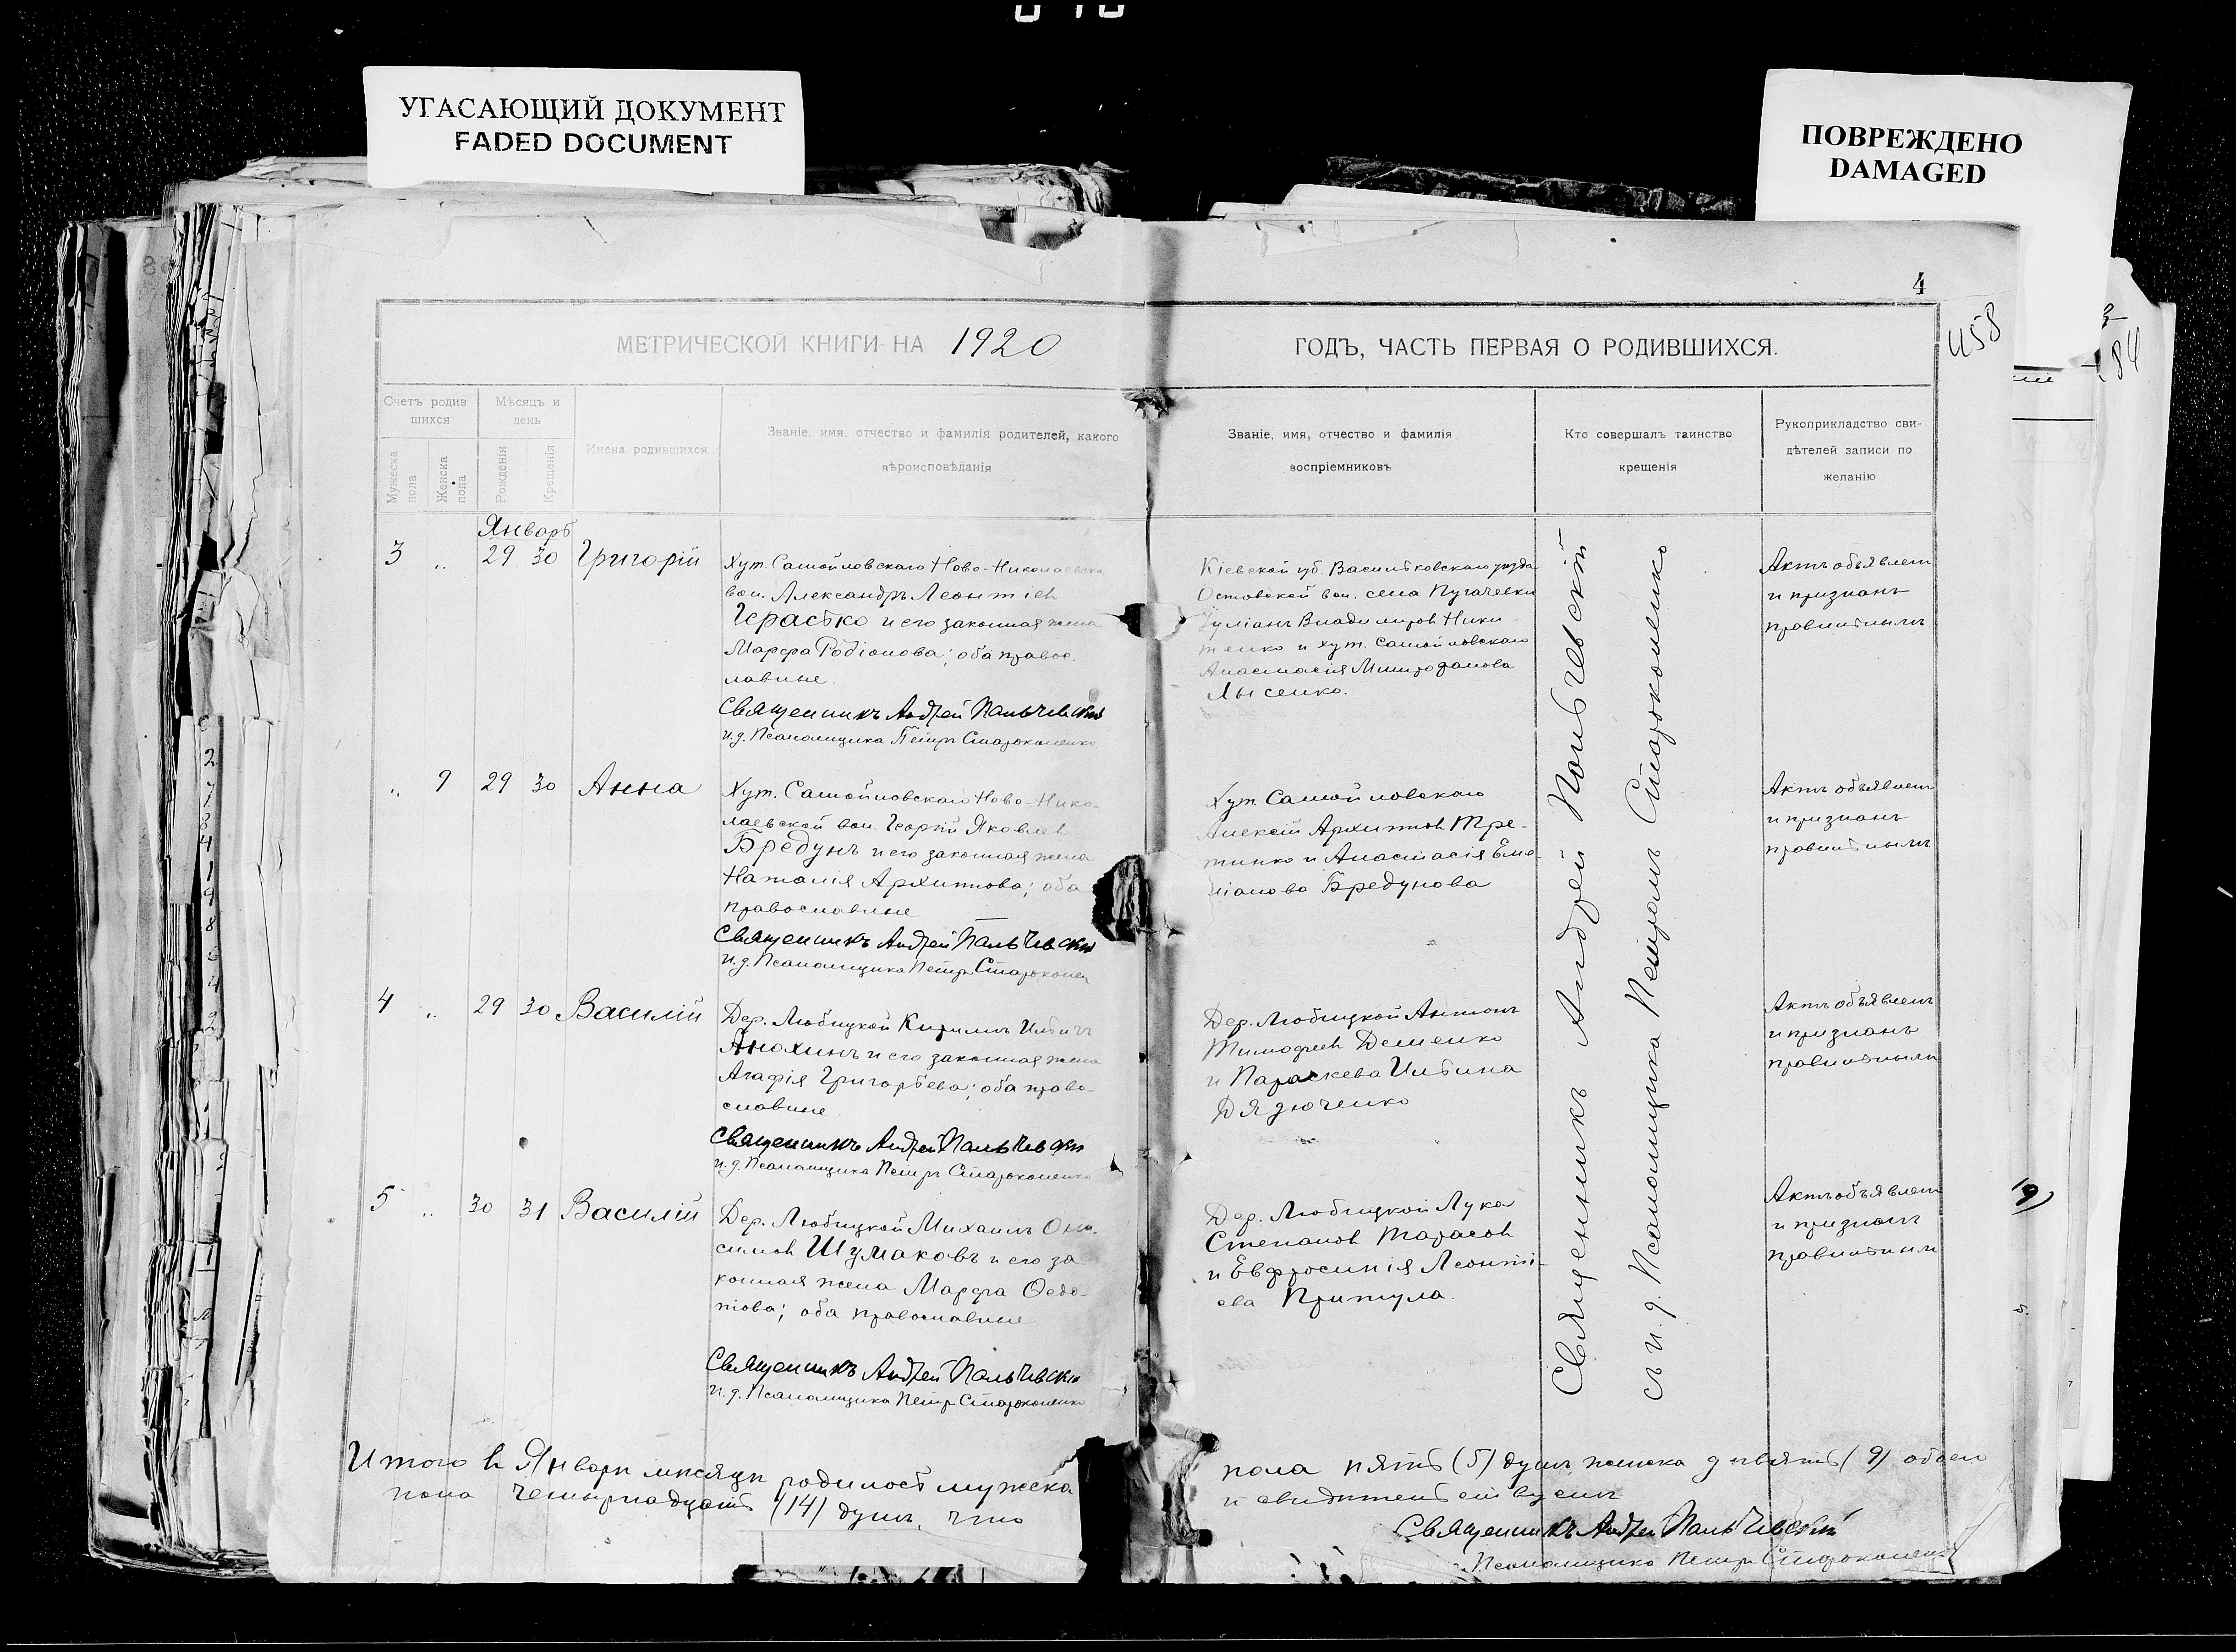 УГАСАЮЩИЙ ДОКУМЕНТ
FADED DOCUMENT
ПОВРЕЖДЕНО
DAMAGED
4
458
84
МЕТРИЧЕСКОЙ КНИГИ НА 1920
ГОДЪ, ЧАСТЬ ПЕРВАЯ О РОДИВШИХСЯ.
Счетъ родив
шихся
Мужеска
пола
Женска
пола
Мѣсяцъ и
день
Рожденія
Крещенія
Имена родившихся
Званіе, имя, отчество и фамилія родителей, какого
вѣроисповѣданія
Званіе, имя, отчество и фамилія
воспріемниковъ
Кто совершалъ таинство
крещенія
Рукоприкладство сви-
дѣтелей записи по
желанію
Январь
3 „ 29 30 Григорій
Хут. Самойловскаго Ново-Николаевско
вол. Александръ Леонтіев
Герасько и его законная жена
Марфа Родіонова; оба правос.
лавные
Священникъ Андрей Пальчевскій
и. д. Псаломщика Петръ Староконенко
Кіевской губ. Васильковскаго уѣзда
вол. села Пугачевки
Іуліанъ Владимиров Ники-
тенко и хут. Самойловскаго
Анастасія Митрофанова
Лысенко.
Актъ объявленъ
и признанъ
правильнымъ
„ 9 29 30 Анна
Хут. Самойловскаго Ново-Нико-
лаевской вол. Георгій Яковлев
Бредунъ и его законная жена
Наталія Архипова; оба
православные
Священникъ Андрей Пальчевскій
и. д. Псаломщика Петръ Староконен
Хут. Самойловскаго
Алексій Архипов Тре-
тинко и Анастасія Еме-
ліанова Бредунова
Актъ объявленъ
и признанъ
правильнымъ
4 „ 29 30 Василій
Дер. Любицкой Кириллъ Ильичъ
Анохинъ и его законная жена
Агафія Григорьева; оба право-
славные
Священникъ Андрей Пальчевскій
и. д. Псаломщика Петръ Староконенко
Дер. Любицкой Антонъ
Тимофеев Деменко
и Параскева Ильина
Дядюченко
Актъ объявленъ
и признанъ
правильнымъ
5 „ 30 31 Василій
Дер. Любицкой Михаилъ Они-
симов Шумаковъ и его за
конная жена Марфа Ѳедо-
това; оба православные
Священникъ Андрей Пальчевскій
и. д. Псаломщика Петръ Староконенко
Дер. Любицкой Лука
Степанов Тарасов
и Евфросинія Леонті-
ева Притула.
Актъ объявленъ
и признанъ
правильнымъ
Священникъ Андрей Пальчевскій
съ и. д. Псаломщика Петромъ Староконенко
Итого в Январѣ мѣсяцѣ родилось мужеска
пола пять (5) душъ, женска девять (9) обоего
пола четырнадцать (14) душъ, что
и свидѣтельствуемъ
Священникъ Андрей Пальчевскій
Псаломщика Петръ Староконенко